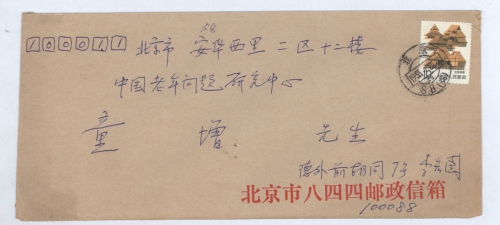 100011
北京市 安华西里 二区十二楼
中国老年问题研究中心
童 增 先生
德外前胡同7号
北京市八四四邮政信箱
100088